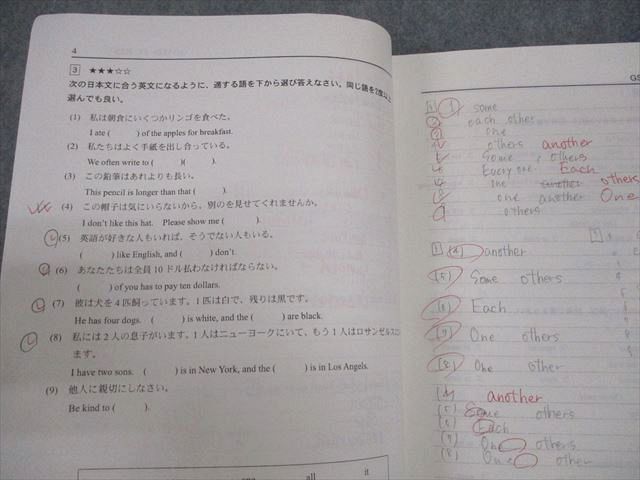 4
3 ★★★☆☆
次の日本文に合う英文になるように、適する語を下から選び答えなさい。同じ語を2度以上
選んでも良い。
(1) 私は朝食にいくつかリンゴを食べた。
I ate ( ) of the apples for breakfast.
(2) 私たちはよく手紙を出し合っている。
We often write to ( )( ).
(3) この鉛筆はあれよりも長い。
This pencil is longer than that ( ).
(4) この帽子は気にいらないから、別のを見せてくれませんか。
I don't like this hat. Please show me ( ).
(5) 英語が好きな人もいれば、そうでない人もいる。
( ) like English, and ( ) don't.
(6) あなたたちは全員10ドル払わなければならない。
( ) of you has to pay ten dollars.
(7) 彼は犬を4匹飼っています。1匹は白で、残りは黒です。
He has four dogs. ( ) is white, and the ( ) are black.
(8) 私には2人の息子がいます。1人はニューヨークにいて、もう1人はロサンゼルスに
ます。
I have two sons. ( ) is in New York, and the ( ) is in Los Angels.
(9) 他人に親切にしなさい。
Be kind to ( ).
all it
GS
some
each other
one
others another
Some others
Every one Each
one another others
one another One
others
(4) another
(5) Some others
(6) Each
(7) One others
(8) One other
(4) another
(5) Some others
(6) Each
(7) One others
(8) One other